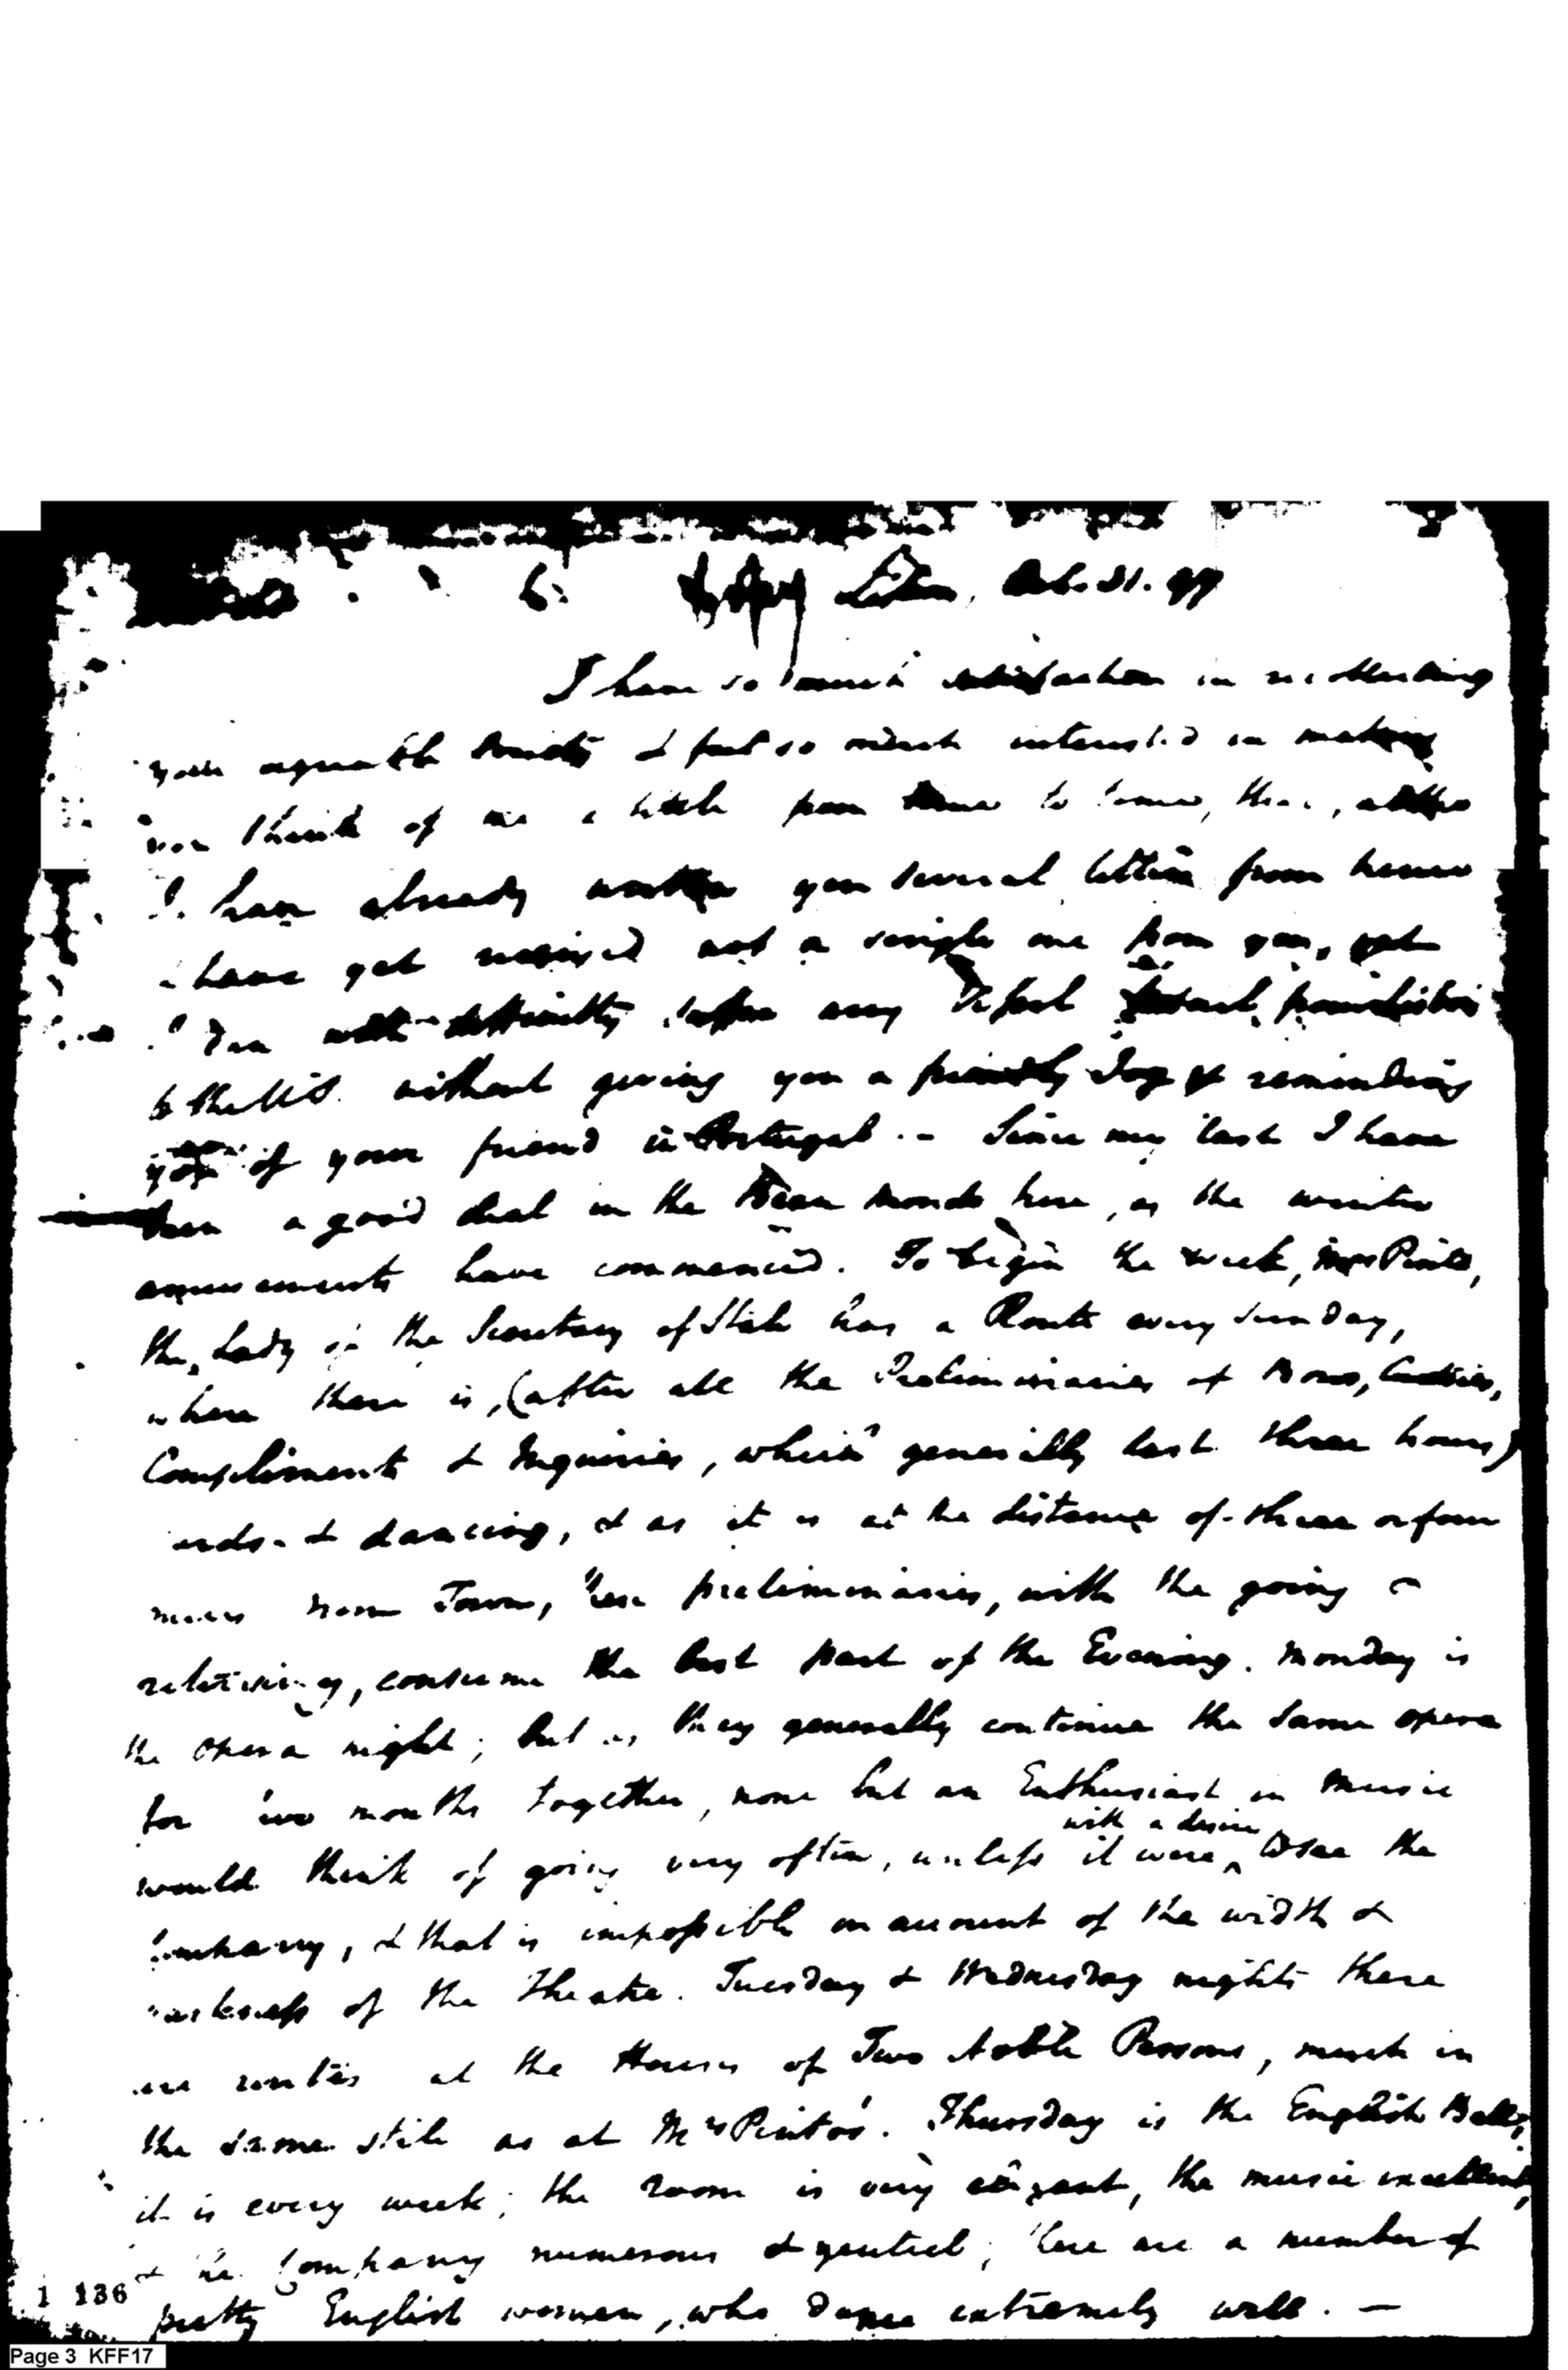 Lisbon, Oct. 31. 97
I have so much satisfaction in recollecting
your agreeable Society & feel so much interested in making
you think of me a little from time to time, that, altho
I have already written you several letters from hence
& have yet received not a single one from you, yet
I can with difficulty suffer any Vessel
to the U.S. without giving you a friendly reminding
you of your friend in Portugal. – Since my last I have
been a good deal in the Beau monde here, as the winter
amusements have commenced. To begin the week, Mrs Pinto,
the Lady of the Secretary of State has a Route every Sunday,
where there is, (after all the Preliminaries of Bows, Curtsies,
Compliments & Inquiries, which generally last three hours)
cards & dancing, & as it is at the distance of three or four
miles from Town, these preliminaries, with the going &
retiring, consume the best part of the Evening. Monday is
the opera night; but as they generally continue the same opera
for two months together, none but an Enthusiast in Music
would think of going very often, unless it were ^ to see the
with a desire
Company, & that is impossible on account of the width &
darkness of the Theatre. Tuesday & Wednesday nights there
are routes at the Houses of Two Noble Persons, much in
the same stile as at Mrs Pinto's. Thursday is the English Ball;
it is every week; the room is very elegant, the music excellent,
& the Company numerous & genteel; there are a number of
pretty English women, who dance extremely well. –
1 136
Page 3 KFF17